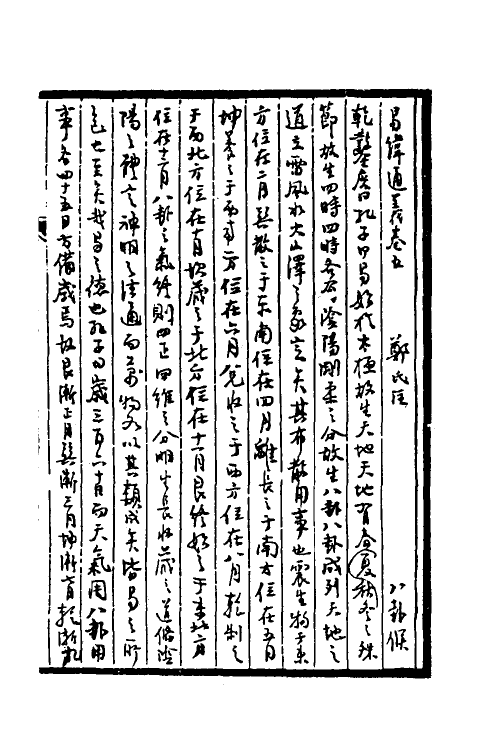 易緯通義卷五　鄭氏注　八卦候
乾鑿度曰孔子曰易始於太極故生天地天地有春夏秋冬之
節故生四時四時各有陰陽剛柔之分故生八卦八卦成列天地之
道立雷風水火山澤之象定矣其布散用事也震生物于東
方位在二月巽散之于東南位在四月離長之于南方位在五月
坤養之于西南方位在六月兌收之于西方位在八月乾制之
于西北方位在十月坎藏之于北方位在十一月艮終始之于東北方
位在十二月八卦之氣終則四正四維之分明生長收藏之道備陰
陽之體定神明之德通而萬物各以其類成矣皆易之所
包也至矣哉易之德也孔子曰歲三百六十日而天氣周八卦用
事各四十五日方備歲焉故艮漸正月巽漸三月坤漸七月乾漸九